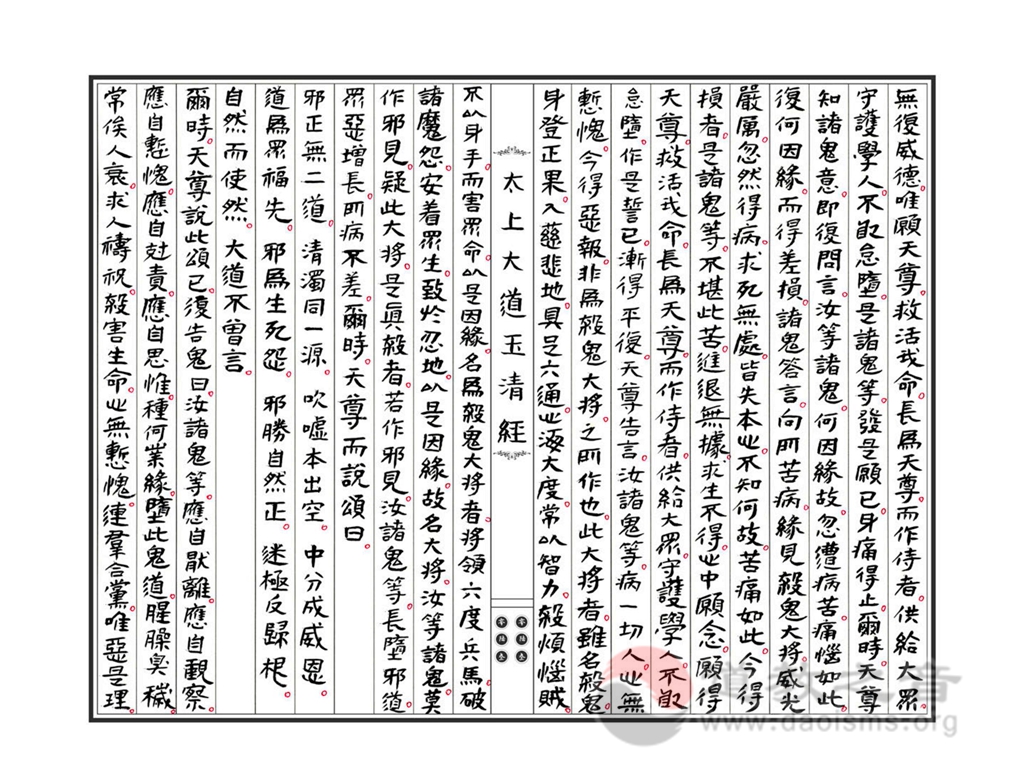 無復威德唯願天尊救活我命長為天尊而作侍者供給大眾
守護學人不敢怠墮是諸鬼等發是願已身痛得止爾時天尊
知諸鬼意即復問言汝等諸鬼何因緣故忽遭病苦痛惱如此
復何因緣而得差損諸鬼答言向所苦病緣見殺鬼大將威光
嚴厲忽然得病求死無處皆失本心不知何故苦痛如此今得
損者是諸鬼等不堪此苦進退無據求生不得心中願念願得
天尊救活我命長為天尊而作侍者供給大眾守護學人不敢
怠墮作是誓已漸得平復天尊告言汝諸鬼等病一切人心無
慙愧今得惡報非為殺鬼大將之所作也此大將者雖名殺鬼
身登正果入慈悲地具足六通心海大度常以智力殺煩惱賊
太上大道玉清經
不以身手而害眾命以是因緣名為殺鬼大將者將領六度兵馬破
諸魔怨安着眾生致於忍地以是因緣故名大將汝等諸鬼莫
作邪見疑此大將是真殺者若作邪見汝諸鬼等長墮邪道
眾惡增長所病不差爾時天尊而說頌曰
邪正無二道 清濁同一源 吹噓本出空 中分成威恩
道為眾福先 邪為生死怨 邪勝自然正 迷極反歸根
自然而使然 大道不曾言
爾時天尊說此頌已復告鬼曰汝諸鬼等應自厭離應自觀察
應自慙愧應自尅責應自思惟種何業緣墮此鬼道腥臊臭穢
常俟人衰求人禱祝殺害生命心無慙愧連羣合黨唯惡是理
道教之音
www.daoisms.org